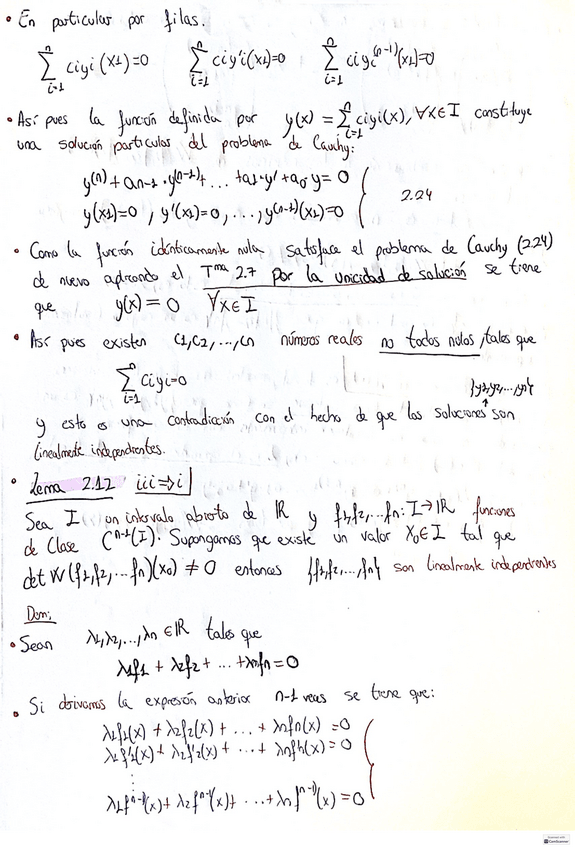 • En particular por filas.
n∑i=1 ciyi(x1)=0   n∑i=1 ciy'i(x1)=0   n∑i=1 ciyi^(n-1)(x1)=0
• Así pues la función definida por y(x) = n∑i=1 ciyi(x), ∀x∈I constituye
una solución particular del problema de Cauchy:
y^(n) + an-1·y^(n-1) + ... + a1·y' + a0·y = 0
y(x1)=0, y'(x1)=0, ..., y^(n-1)(x1)=0   2.24
• Como la función idénticamente nula, satisface el problema de Cauchy (2.24)
de nuevo aplicando el Tma 2.7 por la unicidad de solución se tiene
que y(x) = 0 ∀x∈I
• Así pues existen c1, c2, ..., cn números reales no todos nulos, tales que
n∑i=1 ciyi=0
{y1,y2,...,yn}
y esto es una contradicción con el hecho de que las soluciones son
linealmente independientes.
• Lema 2.12 iii⇒i
Sea I un intervalo abierto de ℝ y f1,f2,...fn: I→ℝ funciones
de Clase C^n-1(I). Supongamos que existe un valor x0∈I tal que
det W(f1,f2,...fn)(x0) ≠ 0 entonces {f1,f2,...,fn} son linealmente independientes
Dem:
• Sean λ1,λ2,...,λn∈ℝ tales que
λ1f1 + λ2f2 + ... + λnfn = 0
• Si derivamos la expresión anterior n-1 veces se tiene que:
λ1f1(x) + λ2f2(x) + ... + λnfn(x) = 0
λ1f'1(x) + λ2f'2(x) + ... + λnf'n(x) = 0
⋮
λ1f^n-1(x) + λ2f^n-1(x) + ... + λnf^(n-1)(x) = 0
CamScanner